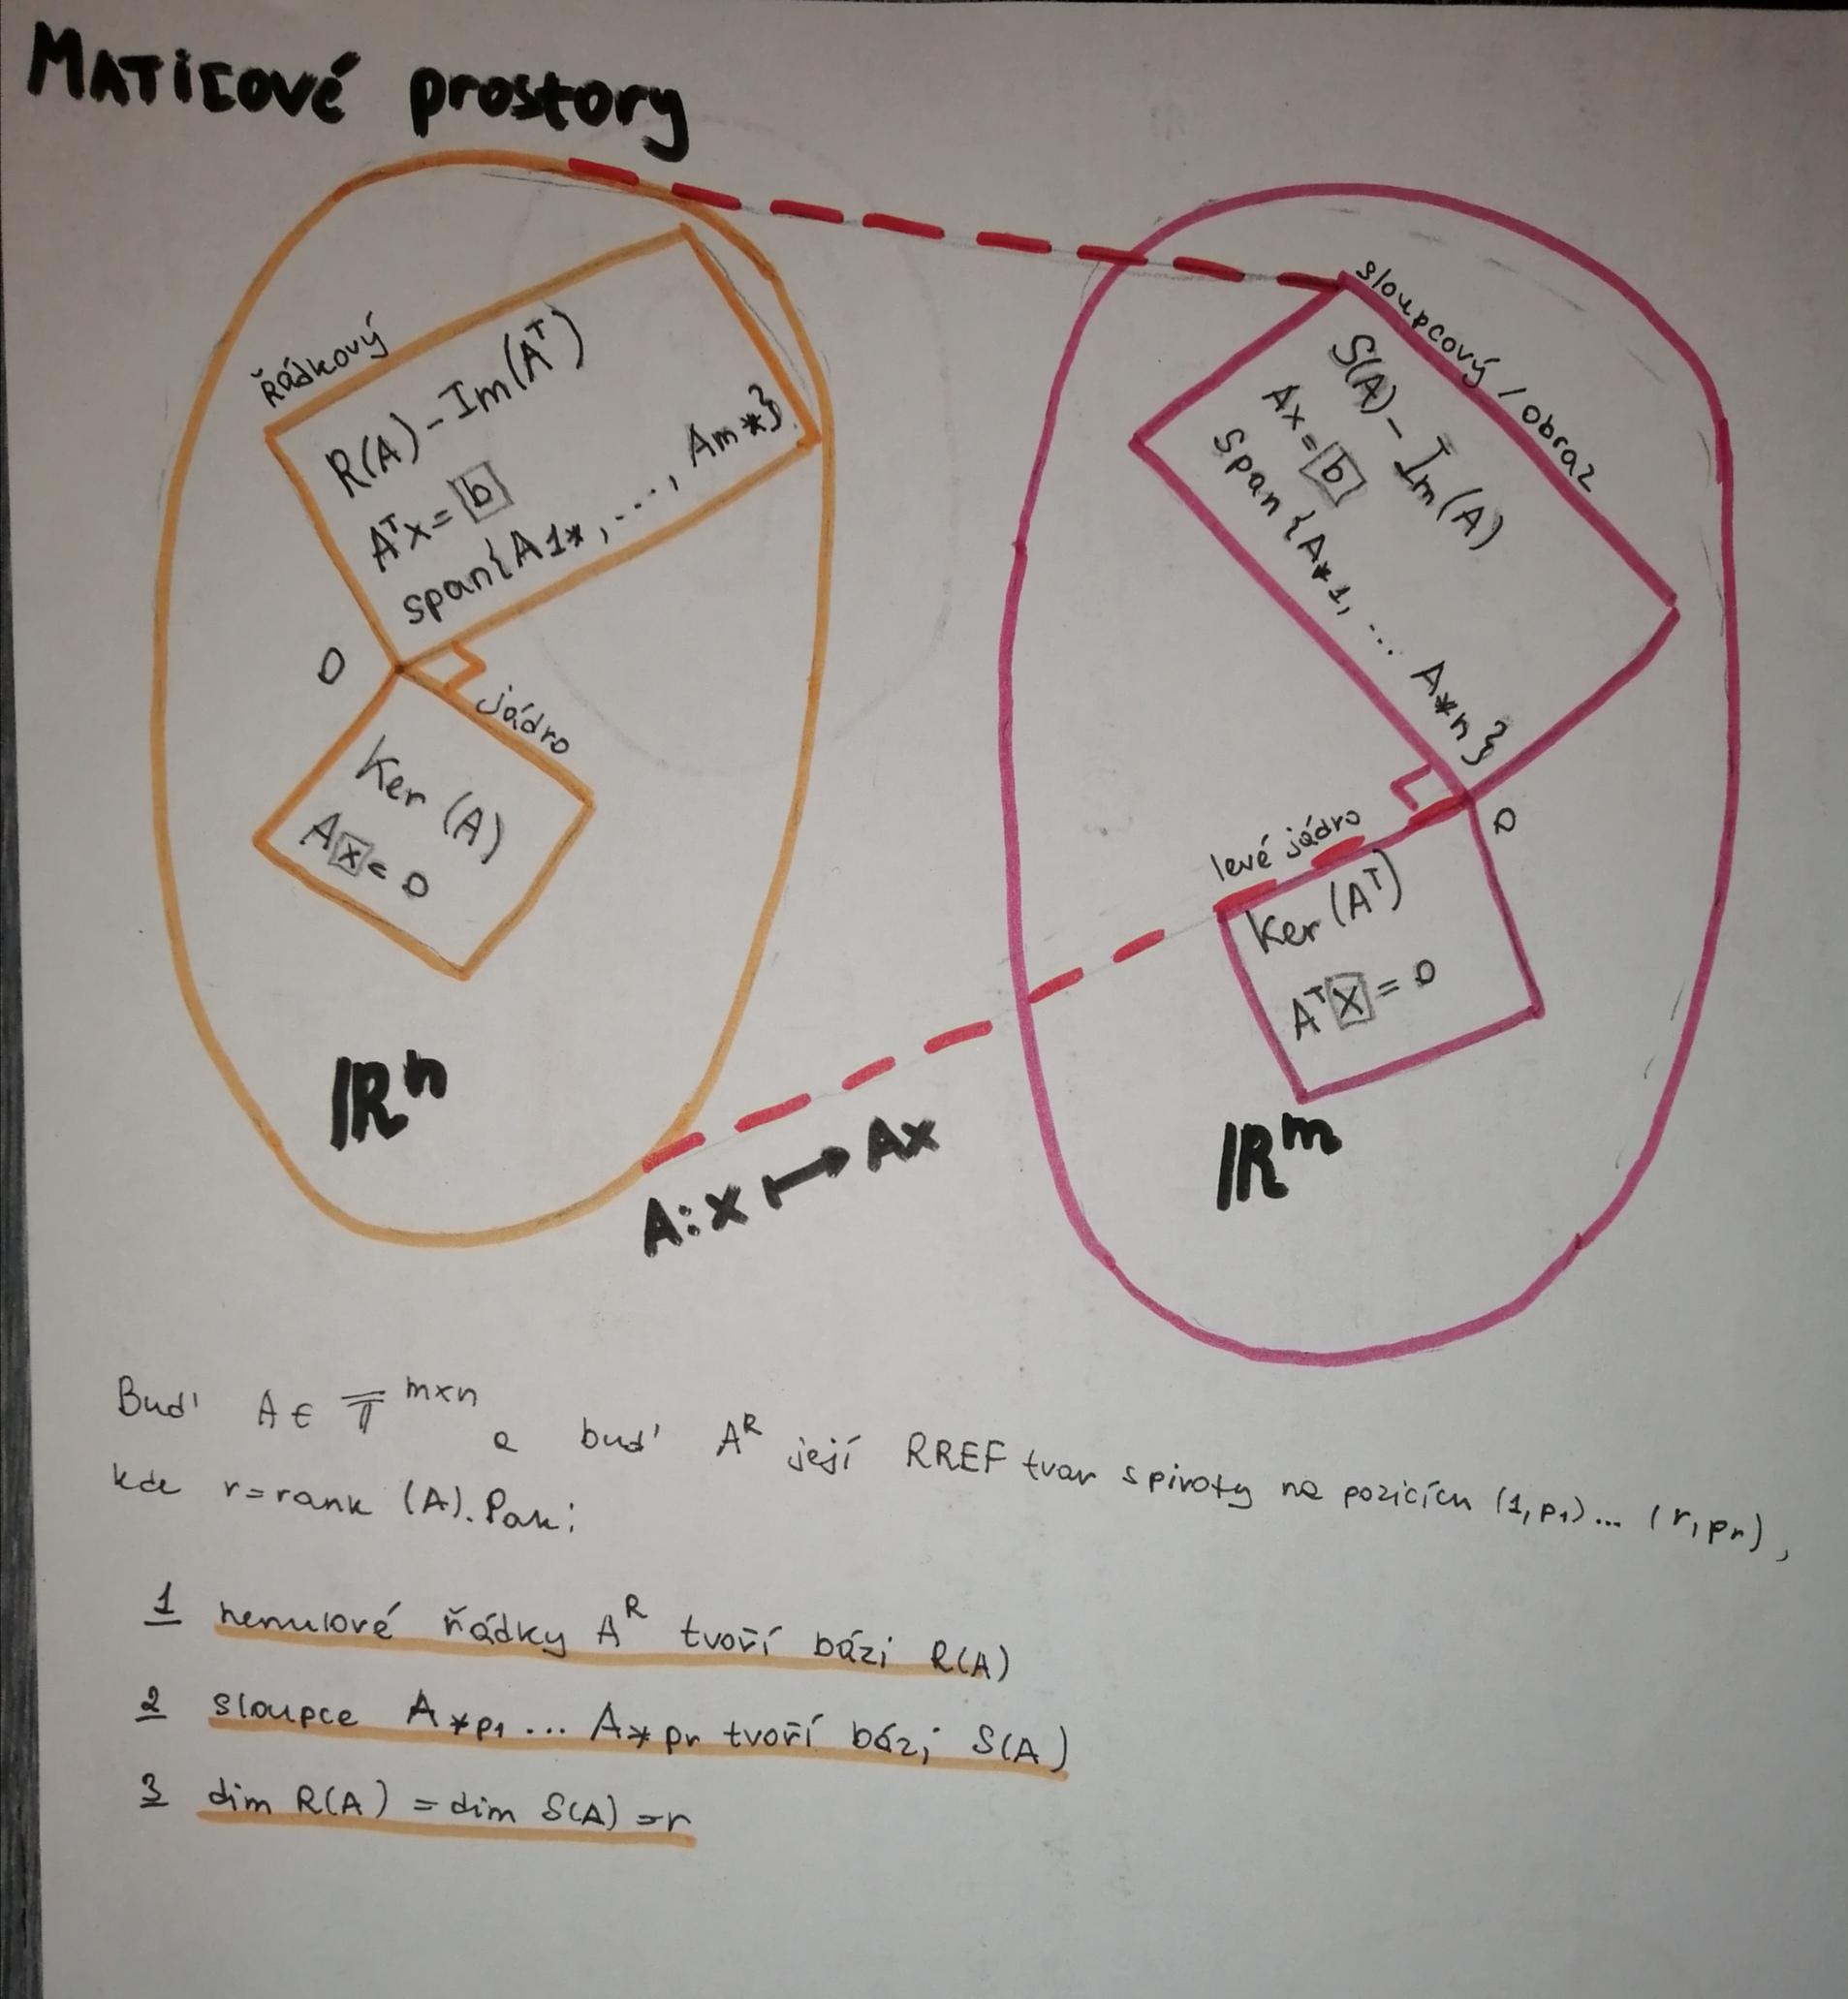 MATICOVÉ prostory
řádkový
R(A) - Im(Aᵀ)
Aᵀx = b
span{A1*, ..., Am*}
0
jádro
Ker (A)
Ax = 0
ℝⁿ
sloupcový / obraz
S(A) - Im(A)
Ax = b
Span {A*1, ... A*n}
0
levé jádro
Ker (Aᵀ)
Aᵀx = 0
ℝᵐ
A: x ↦ Ax
Buď A ∈ 𝕋ᵐˣⁿ a buď Aᴿ její RREF tvar s pivoty na pozicích (1, p₁) ... (r, pr),
kde r = rank (A). Pak:
1 nenulové řádky Aᴿ tvoří bázi R(A)
2 sloupce A*p₁ ... A*pr tvoří bázi S(A)
3 dim R(A) = dim S(A) = r